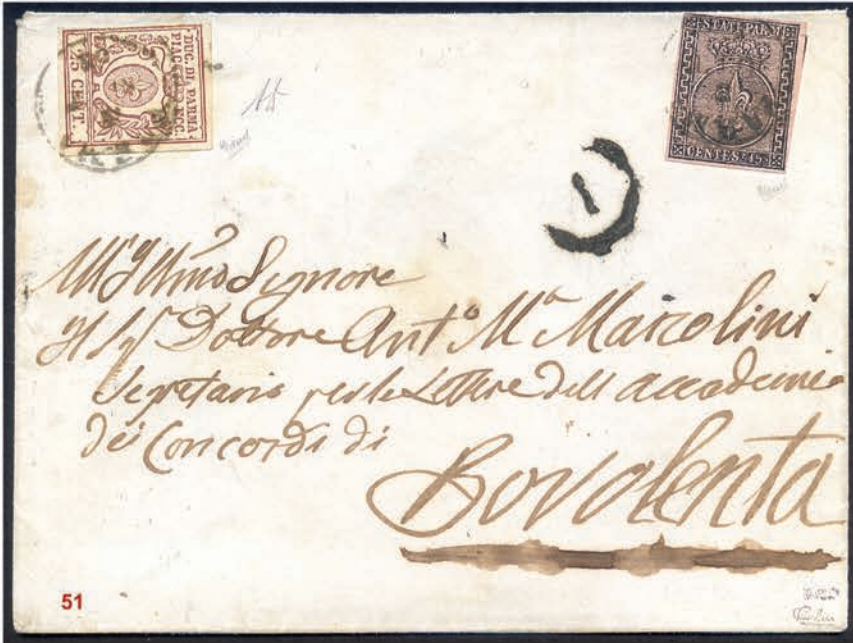 DUC. DI PARMA
PIAC. ECC.
25 CENT.
STATI PARM.
CENTES. 15
All' Illmo Signore
Il Sigr Dottore Anto Ma Marcolini
Segretario per le Lettere dell accademia
dei Concordi di
Bovolenta
51